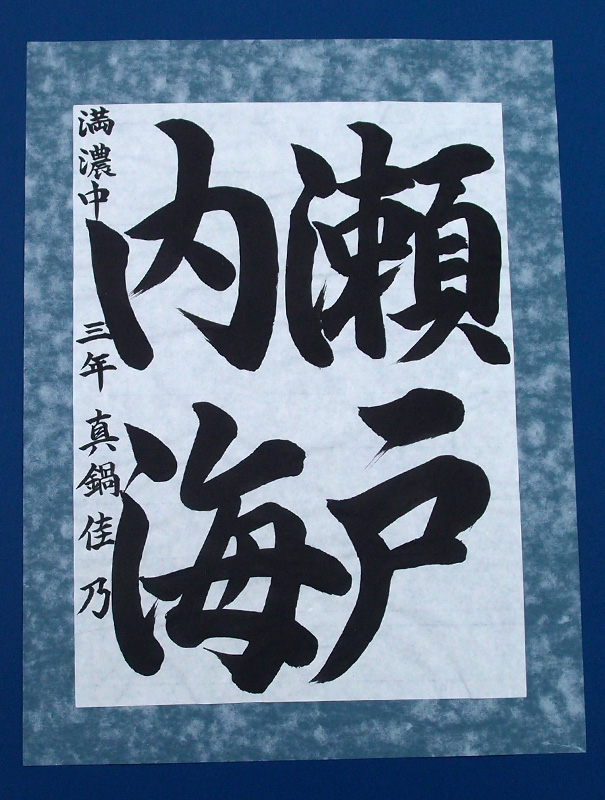 瀬戸
内海
満濃中 三年 真鍋佳乃